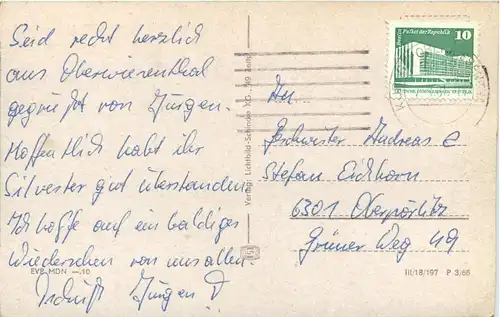 Seid recht herzlich
aus Oberwiesenthal
gegrüßt von Jürgen.
Hoffentlich habt ihr
Silvester gut überstanden
Ich hoffe auf ein baldiges
Wiedersehen von uns allen.
Tschüß Jürgen
EVP MDN —.10
Verlag: Lichtbild-Schincke KG
Berlin Palast der Republik
10
DDR
An
Geschwister Andreas &
Stefan Eichhorn
6301 Oberpörlitz
Grüner Weg 49
III/18/197 P 3/66